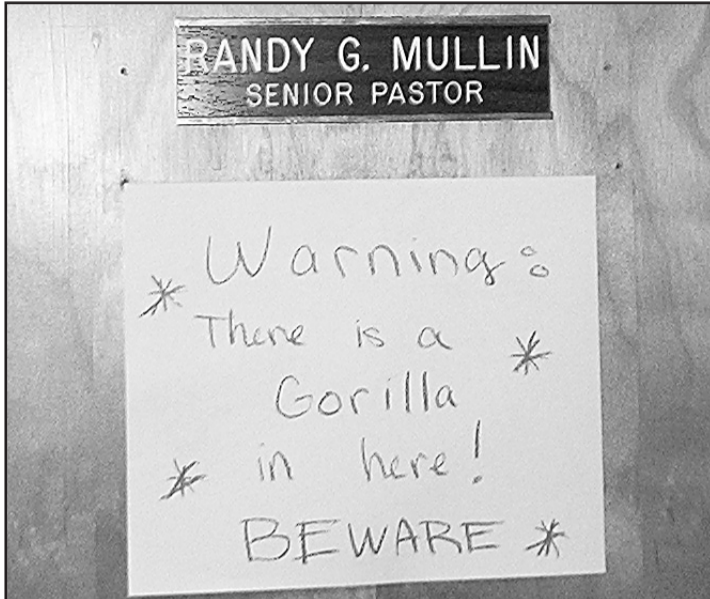 RANDY G. MULLIN
SENIOR PASTOR
Warning:
There is a
Gorilla
in here!
BEWARE